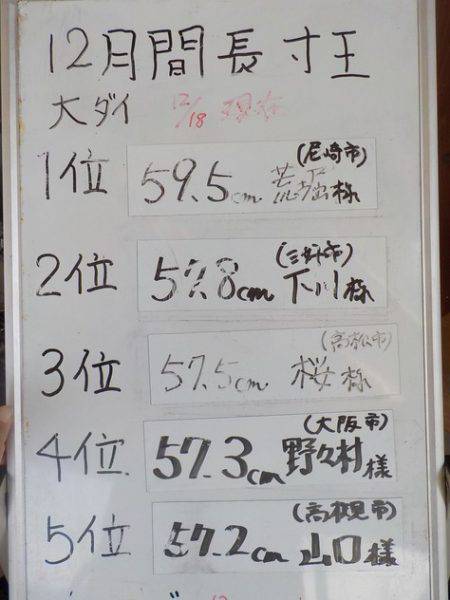 12月間長寸王
大ダイ 12/18 現在
1位 59.5cm (尼崎市) 荒堀様
2位 57.8cm (三野市) 下川様
3位 57.5cm (高松市) 桜様
4位 57.3cm (大阪市) 野々村様
5位 57.2cm (高槻市) 山口様